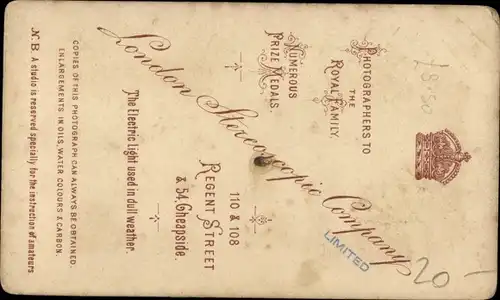 £8.50
PHOTOGRAPHERS TO
THE
ROYAL FAMILY.
NUMEROUS
PRIZE MEDALS.
London Stereoscopic Company
LIMITED
110 & 108
REGENT STREET
& 54, Cheapside.
The Electric Light used in dull weather.
COPIES OF THIS PHOTOGRAPH CAN ALWAYS BE OBTAINED.
ENLARGEMENTS IN OILS, WATER COLOURS & CARBON.
N.B. A studio is reserved specially for the instruction of amateurs.
20-